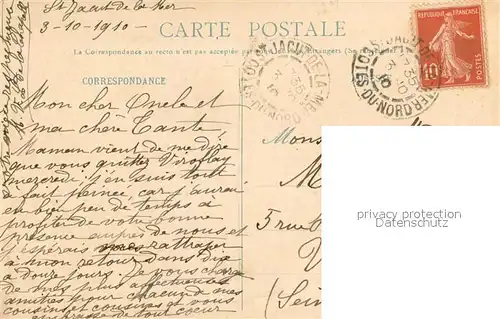 St Jacut de la Mer
3-10-1910-
CARTE POSTALE
La Correspondance au recto n'est pas
Étrangers (Se
CORRESPONDANCE
Mon cher Oncle et
ma chère Tante
Maman vient de me dire
que vous quittez Viroflay
mercredi j'en suis tout
à fait peinée, car j'aurai
eu bien peu de temps à
profiter de votre bonne
présence auprès de nous et
j'espérais vous rattraper
à mon retour dans dix
à douze jours. Je vous charge
de mes plus affectueuses
amitiés pour chacun de mes
cousins et cousines et vous
embrasse de tout coeur
REPUBLIQUE FRANÇAISE
10
ST JACUT-DE-LA-MER
COTES-DU-NORD
Mons
M
5 rue
V
(Sein
privacy protection
Datenschutz